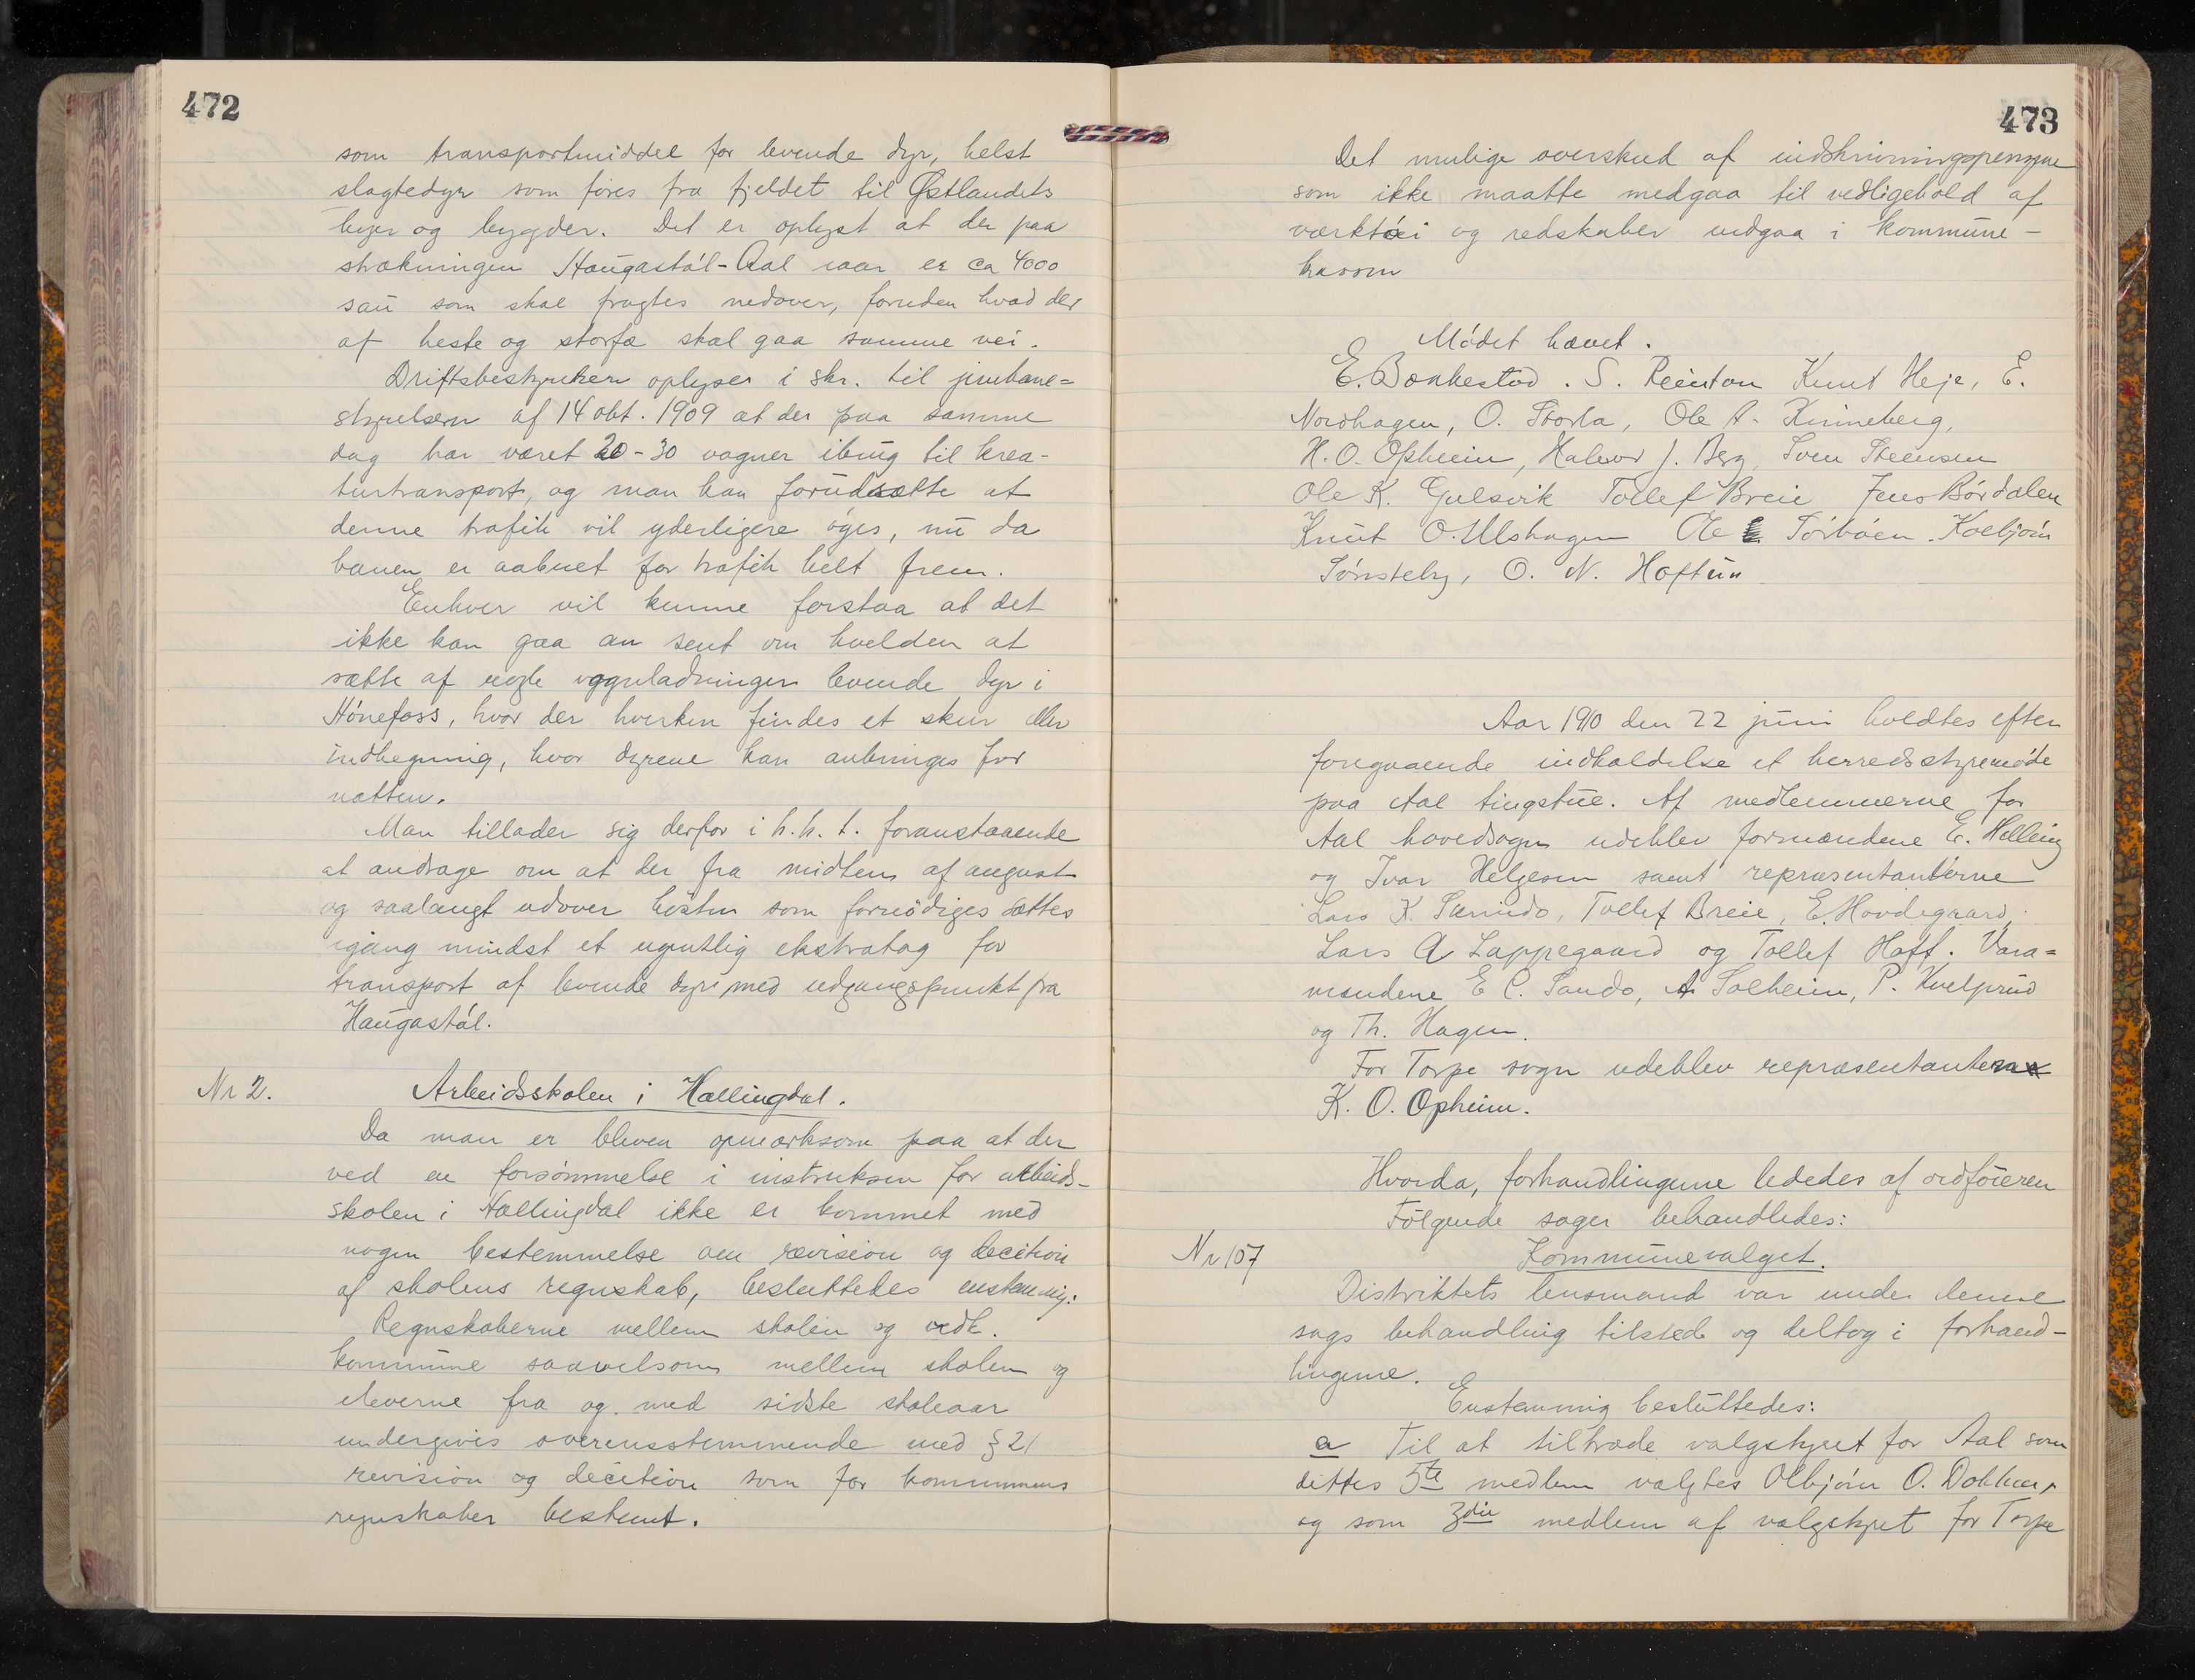 472
som transportmiddel for levende dyr, helst
slagtedyr som føres fra fjeldet til Østlandets
byer og bygder. Det er oplyst at der paa
strækningen Haugastøl-Aal iaar er ca 4000
sau som skal fragtes nedover, foruden hvad der
af heste og storfæ skal gaa samme vei.
Driftsbestyreren oplyser i skr. til jernbane=
styrelsen af 14 okt. 1909 at der paa samme
dag har været 20-30 vogner ibrug til krea-
turtransport, og man kan forudsætte at
denne trafik vil yderligere øges, nu da
banen er aabnet for trafik helt frem.
Enhver vil kunne forstaa at det
ikke kan gaa an sent om kvelden at
sætte af nogle vognladninger levende dyr i
Hønefoss, hvor der hverken findes et skur eller
indhegning, hvor dyrene kan anbringes for
natten.
Man tillader sig derfor i h.h.t. foranstaaende
at andrage om at der fra midten af august
og saalangt udover høsten som fornødiges sættes
igang mindst et ugentlig ekstratog for
transport af levende dyr med udgangspunkt fra
Haugastøl.
Nr 2. Arbeidsskolen i Hallingdal.
Da man er bleven opmerksom paa at der
ved en forsømmelse i instruksen for arbeids-
skolen i Hallingdal ikke er kommet med
nogen bestemmelse om revision og decition
af skolens regnskab, besluttedes enstemmig:
Regnskaberne mellem skolen og vedk.
kommune saavelsom mellem skolen og
eleverne fra og med sidste skoleaar
undergives overensstemmende med § 21
revision og decition som for kommunens
regnskaber bestemt.
473
Det mulige overskud af indskrivningspengene
som ikke maatte medgaa til vedligehold af
værktøi og redskaber indgaa i kommune-
kassen
Mødet hævet.
E. Bonkestad. S. Reinton Knut Heje, E.
Nordhagen, O. Storla, Ole A. Kinneberg,
H. O. Opheim, Halvor J. Berg, Sven Steensen
Ole K. Gulsvik Tollef Breie Jens Børdalen
Knut O. Ulshagen Ole Torbøen Kolbjørn
Sønsteby, O. N. Haftun
Aar 1910 den 22 juni holdtes efter
foregaaende indkaldelse et herredsstyremøde
paa Aal tingstue. Af medlemmerne for
Aal hovedsogn udeblev formændene E. Helling
og Ivar Helgesen samt repræsentanterne
Lars K. Sando, Tollef Breie, E. Hovdegaard,
Lars A Lappegaard og Tollef Hoff. Vara=
mændene E C. Sando, A Solheim, P. Kvelprud
og Th. Hagen.
For Torpe sogn udeblev repræsentanten
K. O. Opheim.
Hvorda, forhandlingerne lededes af ordføreren
Følgende sager behandledes:
Nr 107 Kommunevalget.
Distriktets lensmand var under denne
sags behandling tilstede og deltog i forhand-
lingerne.
Enstemmig besluttedes:
a Til at tiltræde valgstyret for Aal som
dettes 5te medlem valgtes Olbjørn O. Dokken,
og som 3die medlem af valgstyret for Torpe